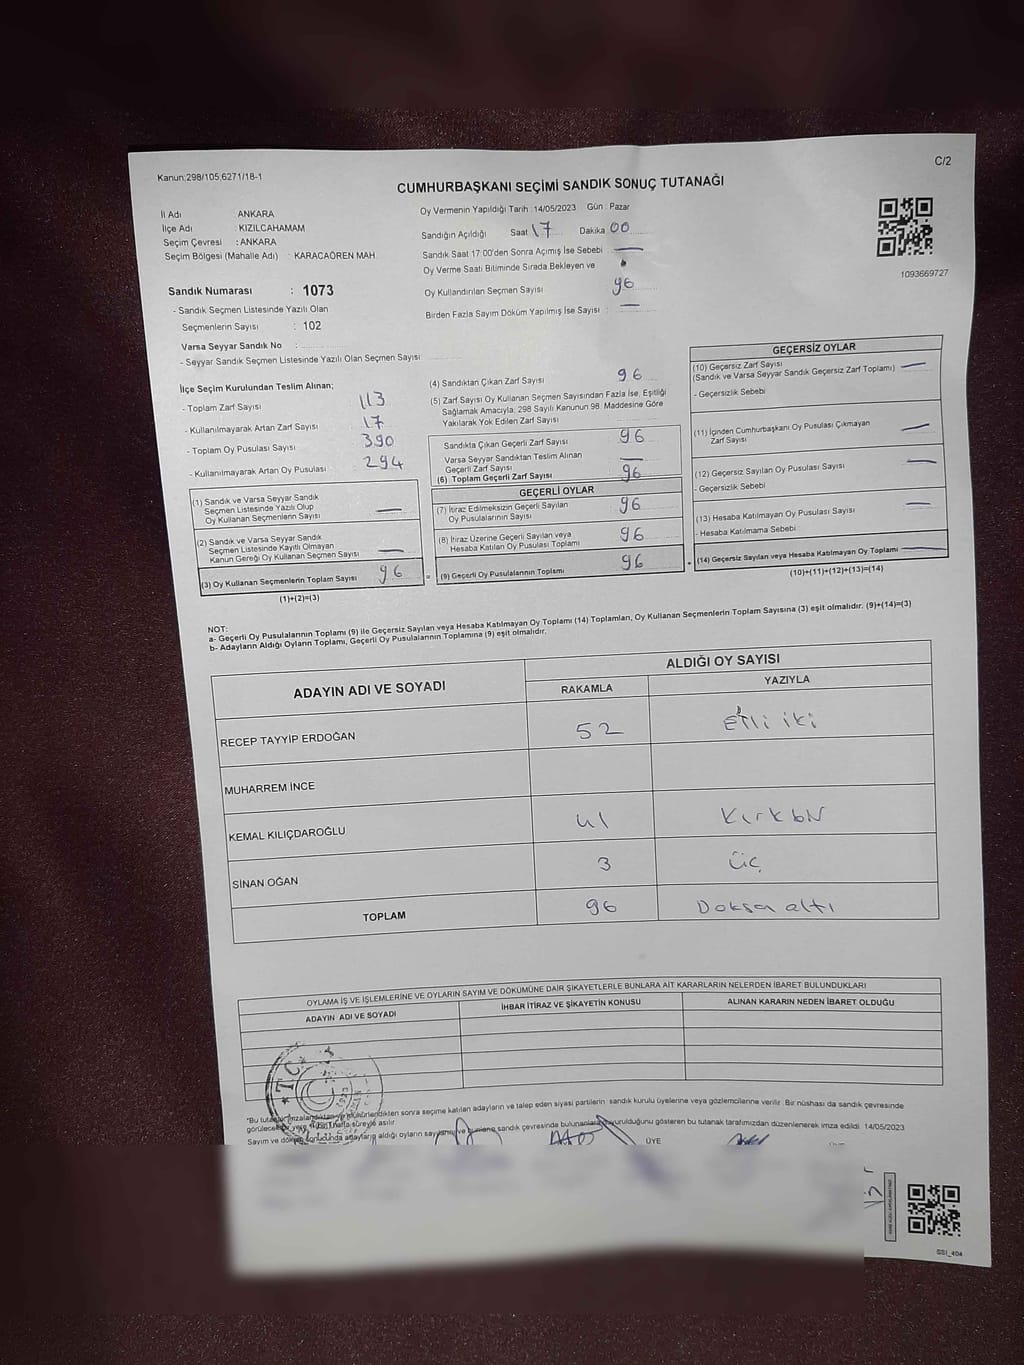 Kanun:298/105,6271/18-1
C/2
CUMHURBAŞKANI SEÇİMİ SANDIK SONUÇ TUTANAĞI
İl Adı ANKARA
İlçe Adı : KIZILCAHAMAM
Seçim Çevresi : ANKARA
Seçim Bölgesi (Mahalle Adı) : KARACAÖREN MAH.
Oy Vermenin Yapıldığı Tarih :14/05/2023 Gün : Pazar
Sandığın Açıldığı Saat 17 Dakika 00
Sandık Saat 17:00'den Sonra Açımış İse Sebebi —
Oy Verme Saati Bitiminde Sırada Bekleyen ve
Oy Kullandırılan Seçmen Sayısı 96
Birden Fazla Sayım Döküm Yapılmış İse Sayısı : —
1093669727
Sandık Numarası : 1073
- Sandık Seçmen Listesinde Yazılı Olan
Seçmenlerin Sayısı : 102
Varsa Seyyar Sandık No :
- Seyyar Sandık Seçmen Listesinde Yazılı Olan Seçmen Sayısı
İlçe Seçim Kurulundan Teslim Alınan;
- Toplam Zarf Sayısı 113
- Kullanılmayarak Artan Zarf Sayısı 17
- Toplam Oy Pusulası Sayısı 390
- Kullanılmayarak Artan Oy Pusulası 294
(1) Sandık ve Varsa Seyyar Sandık
Seçmen Listesinde Yazılı Olup
Oy Kullanan Seçmenlerin Sayısı —
(2) Sandık ve Varsa Seyyar Sandık
Seçmen Listesinde Kayıtlı Olmayan
Kanun Gereği Oy Kullanan Seçmen Sayısı —
(3) Oy Kullanan Seçmenlerin Toplam Sayısı 96
(1)+(2)=(3)
(4) Sandıktan Çıkan Zarf Sayısı 96
(5) Zarf Sayısı Oy Kullanan Seçmen Sayısından Fazla İse, Eşitliği
Sağlamak Amacıyla; 298 Sayılı Kanunun 98. Maddesine Göre
Yakılarak Yok Edilen Zarf Sayısı
Sandıkta Çıkan Geçerli Zarf Sayısı 96
Varsa Seyyar Sandıktan Teslim Alınan
Geçerli Zarf Sayısı —
(6) Toplam Geçerli Zarf Sayısı 96
GEÇERLİ OYLAR
(7) İtiraz Edilmeksizin Geçerli Sayılan
Oy Pusulalarının Sayısı 96
(8) İtiraz Üzerine Geçerli Sayılan veya
Hesaba Katılan Oy Pusulası Toplamı 96
= (9) Geçerli Oy Pusulalarının Toplamı 96
GEÇERSİZ OYLAR
(10) Geçersiz Zarf Sayısı
(Sandık ve Varsa Seyyar Sandık Geçersiz Zarf Toplamı) —
- Geçersizlik Sebebi
(11) İçinden Cumhurbaşkanı Oy Pusulası Çıkmayan
Zarf Sayısı —
(12) Geçersiz Sayılan Oy Pusulası Sayısı —
- Geçersizlik Sebebi
(13) Hesaba Katılmayan Oy Pusulası Sayısı —
- Hesaba Katılmama Sebebi
+ (14) Geçersiz Sayılan veya Hesaba Katılmayan Oy Toplamı —
(10)+(11)+(12)+(13)=(14)
NOT:
a- Geçerli Oy Pusulalarının Toplamı (9) ile Geçersiz Sayılan veya Hesaba Katılmayan Oy Toplamı (14) Toplamları, Oy Kullanan Seçmenlerin Toplam Sayısına (3) eşit olmalıdır. (9)+(14)=(3)
b- Adayların Aldığı Oyların Toplamı, Geçerli Oy Pusulalarının Toplamına (9) eşit olmalıdır.
ADAYIN ADI VE SOYADI
ALDIĞI OY SAYISI
RAKAMLA YAZIYLA
RECEP TAYYİP ERDOĞAN 52 Etli iki
MUHARREM İNCE
KEMAL KILIÇDAROĞLU 41 Kırkbir
SİNAN OĞAN 3 üç
TOPLAM 96 Doksa altı
OYLAMA İŞ VE İŞLEMLERİNE VE OYLARIN SAYIM VE DÖKÜMÜNE DAİR ŞİKAYETLERLE BUNLARA AİT KARARLARIN NELERDEN İBARET BULUNDUKLARI
ADAYIN ADI VE SOYADI İHBAR İTİRAZ VE ŞİKAYETİN KONUSU ALINAN KARARIN NEDEN İBARET OLDUĞU
T.C.
*Bu tutanak imzalandıktan ve mühürlendikten sonra seçime katılan adayların ve talep eden siyasi partilerin sandık kurulu üyelerine veya gözlemcilerine verilir. Bir nüshası da sandık çevresinde
görülecek yere 1 (bir) hafta süreyle asılır.
Sayım ve döküm sonucunda adayların aldığı oyların sayılarını ve bunların sandık çevresinde bulunanlara duyurulduğunu gösteren bu tutanak tarafımızdan düzenlenerek imza edildi. 14/05/2023
ÜYE
SSI_404